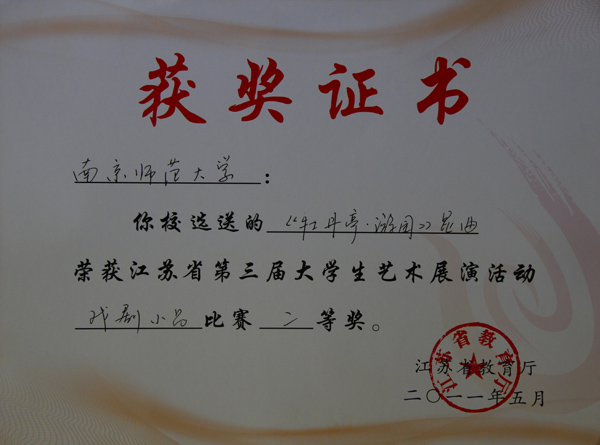 获奖证书
南京师范大学：
你校选送的《牡丹亭·游园》昆曲
荣获江苏省第三届大学生艺术展演活动
戏剧小品比赛二等奖。
江苏省教育厅
江苏省教育厅
二〇一一年五月